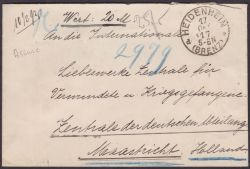 Wert: 20 M
An die Internationale
2979
Liebeswerke Zentrale für
Verwundete u Kriegsgefangene
Zentrale der deutschen Abteilung
Maastricht
Holland
HEIDENHEIM
17
17
5-6N
(BRENZ)